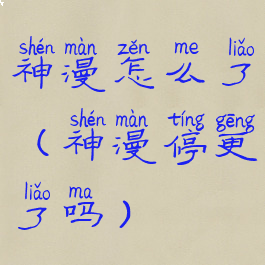 shén màn zěn me liǎo
神漫怎么了
shén màn tíng gēng
（神漫停更
liǎo ma
了吗）